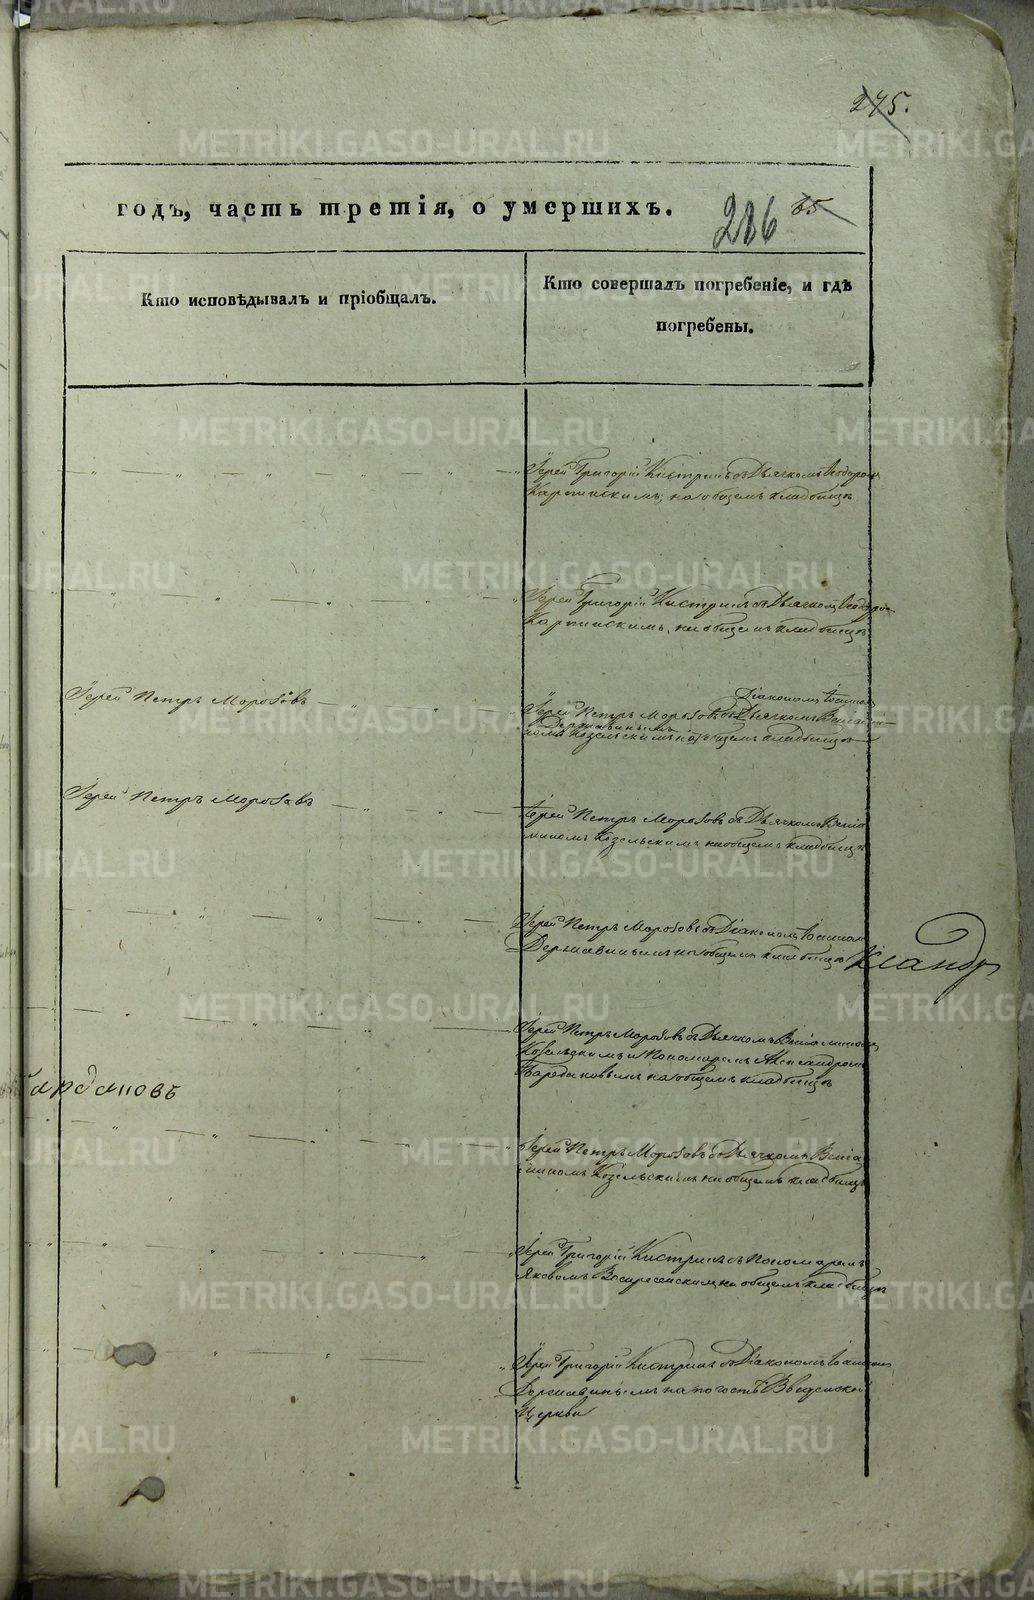 245.
годъ, часть третія, о умершихъ.
286 65
Кто исповѣдывалъ и пріобщалъ.
Кто совершалъ погребеніе, и гдѣ
погребены.
Іерей Григорій Кистринъ съ Дьячкомъ Ѳеодоромъ
Карпинскимъ, на общемъ кладбищѣ
Іерей Григорій Кистринъ съ Дьячкомъ Ѳеодоромъ
Карпинскимъ, на общемъ кладбищѣ
Іерей Петръ Морозовъ
Діакономъ Іоанномъ
Іерей Петръ Морозовъ съ Дьячкомъ Веніами-
Державинымъ
номъ Козельскимъ на общемъ кладбищѣ
Іерей Петръ Морозовъ
Іерей Петръ Морозовъ съ Дьячкомъ Веніа
миномъ Козельскимъ на общемъ кладбищѣ
Іерей Петръ Морозовъ съ Діакономъ Іоанномъ
Державинымъ на общемъ кладбищѣ
Іерей Петръ Морозовъ съ Дьячкомъ Веніаминомъ
Козельскимъ и Пономаремъ Александромъ
на общемъ кладбищѣ
Іерей Петръ Морозовъ съ Дьячкомъ Веніа
миномъ Козельскимъ на общемъ кладбищѣ
Іерей Григорій Кистринъ съ Пономаремъ
Яковомъ Воскресенскимъ на общемъ кладбищѣ
Іерей Григорій Кистринъ съ Діакономъ Іоанномъ
Державинымъ на погостѣ Введенской
Церкви
METRIKI.GASO-URAL.RU